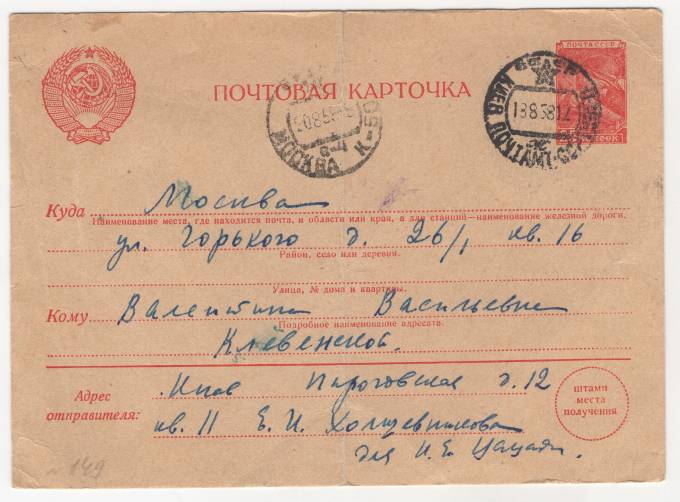 ПОЧТА СССР
ПОЧТОВАЯ КАРТОЧКА
КИЕВ ПОЧТАМТ
18 8 58
МОСКВА К-50
20 8 58
Куда Москва
Наименование места, где находится почта, и области или края, а для станций—наименование железной дороги.
ул. Горького д. 26/1, кв. 16
Район, село или деревня.
Улица, № дома и квартиры.
Кому Валентине Васильевне
Подробное наименование адресата.
Клевенской.
Адрес отправителя:
Киев Пироговская д. 12
кв. 11 Е. И.
для И. Е.
штамп
места
получения
№ 149